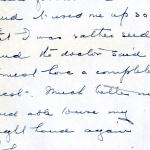 and it used me up so
I was rather seedy
and the doctor said
must have a complete
rest. Much better now
and able to use my
right hand again